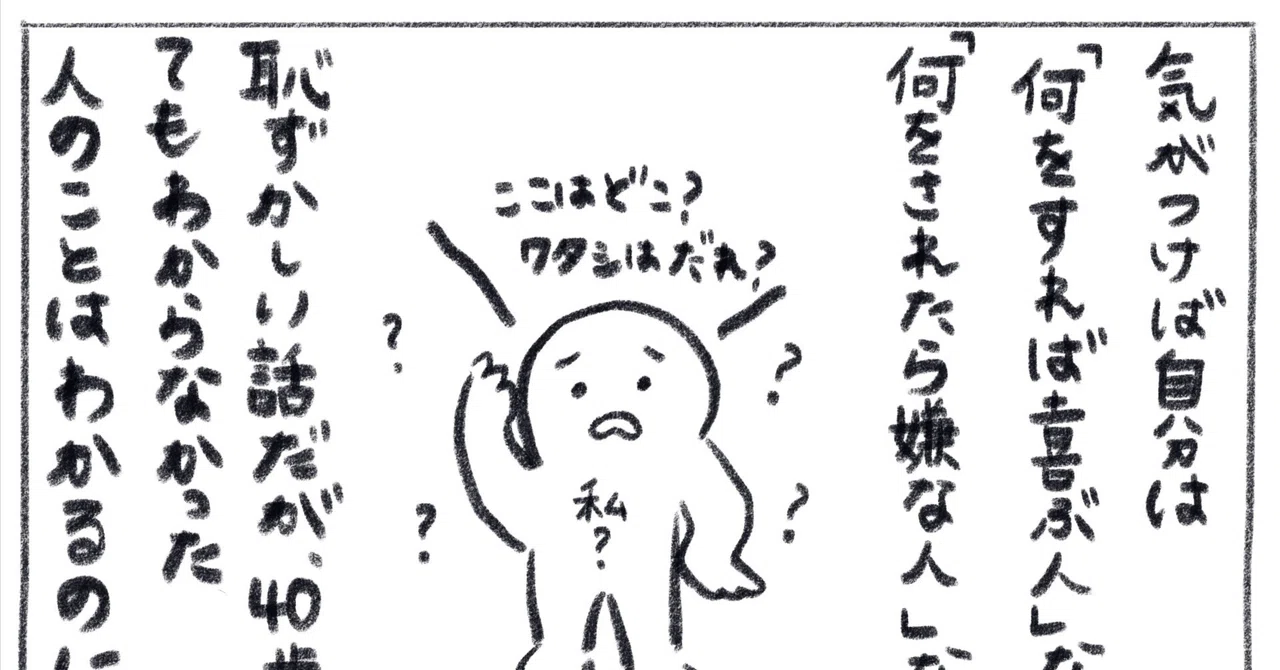 気がつけば自分は
「何をすれば喜ぶ人」な
「何をされたら嫌な人」な
ここはどこ?
ワタシはだれ?
?
?
?
?
私
?
恥ずかしい話だが、40歩
てもわからなかった
人のことはわかるのに